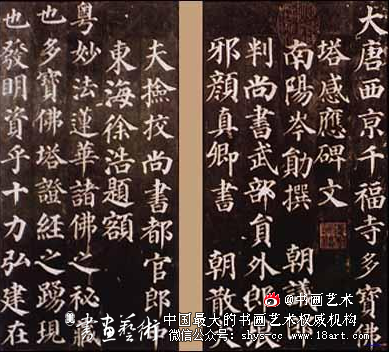 大唐西京千福寺多寶佛
塔感應碑文
南陽岑勛撰 朝議郎
判尚書武部貟外郎
邪顏真卿書 朝散
夫撿挍尚書都官郎中
東海徐浩題額
粵妙法蓮華諸佛之秘藏
也多寶佛塔證經之踴現
也發明資乎十力弘建在
@书画艺术
書畫藝術
中国最大的书画艺术权威机构
微信公众号：shys-cc http://www.18art.com